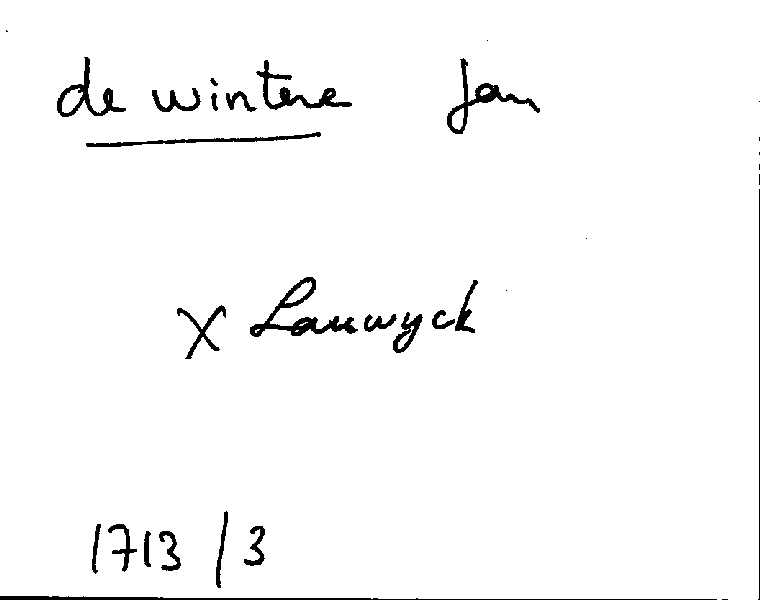 de wintere Jan
X Lauwyck
1713 / 3